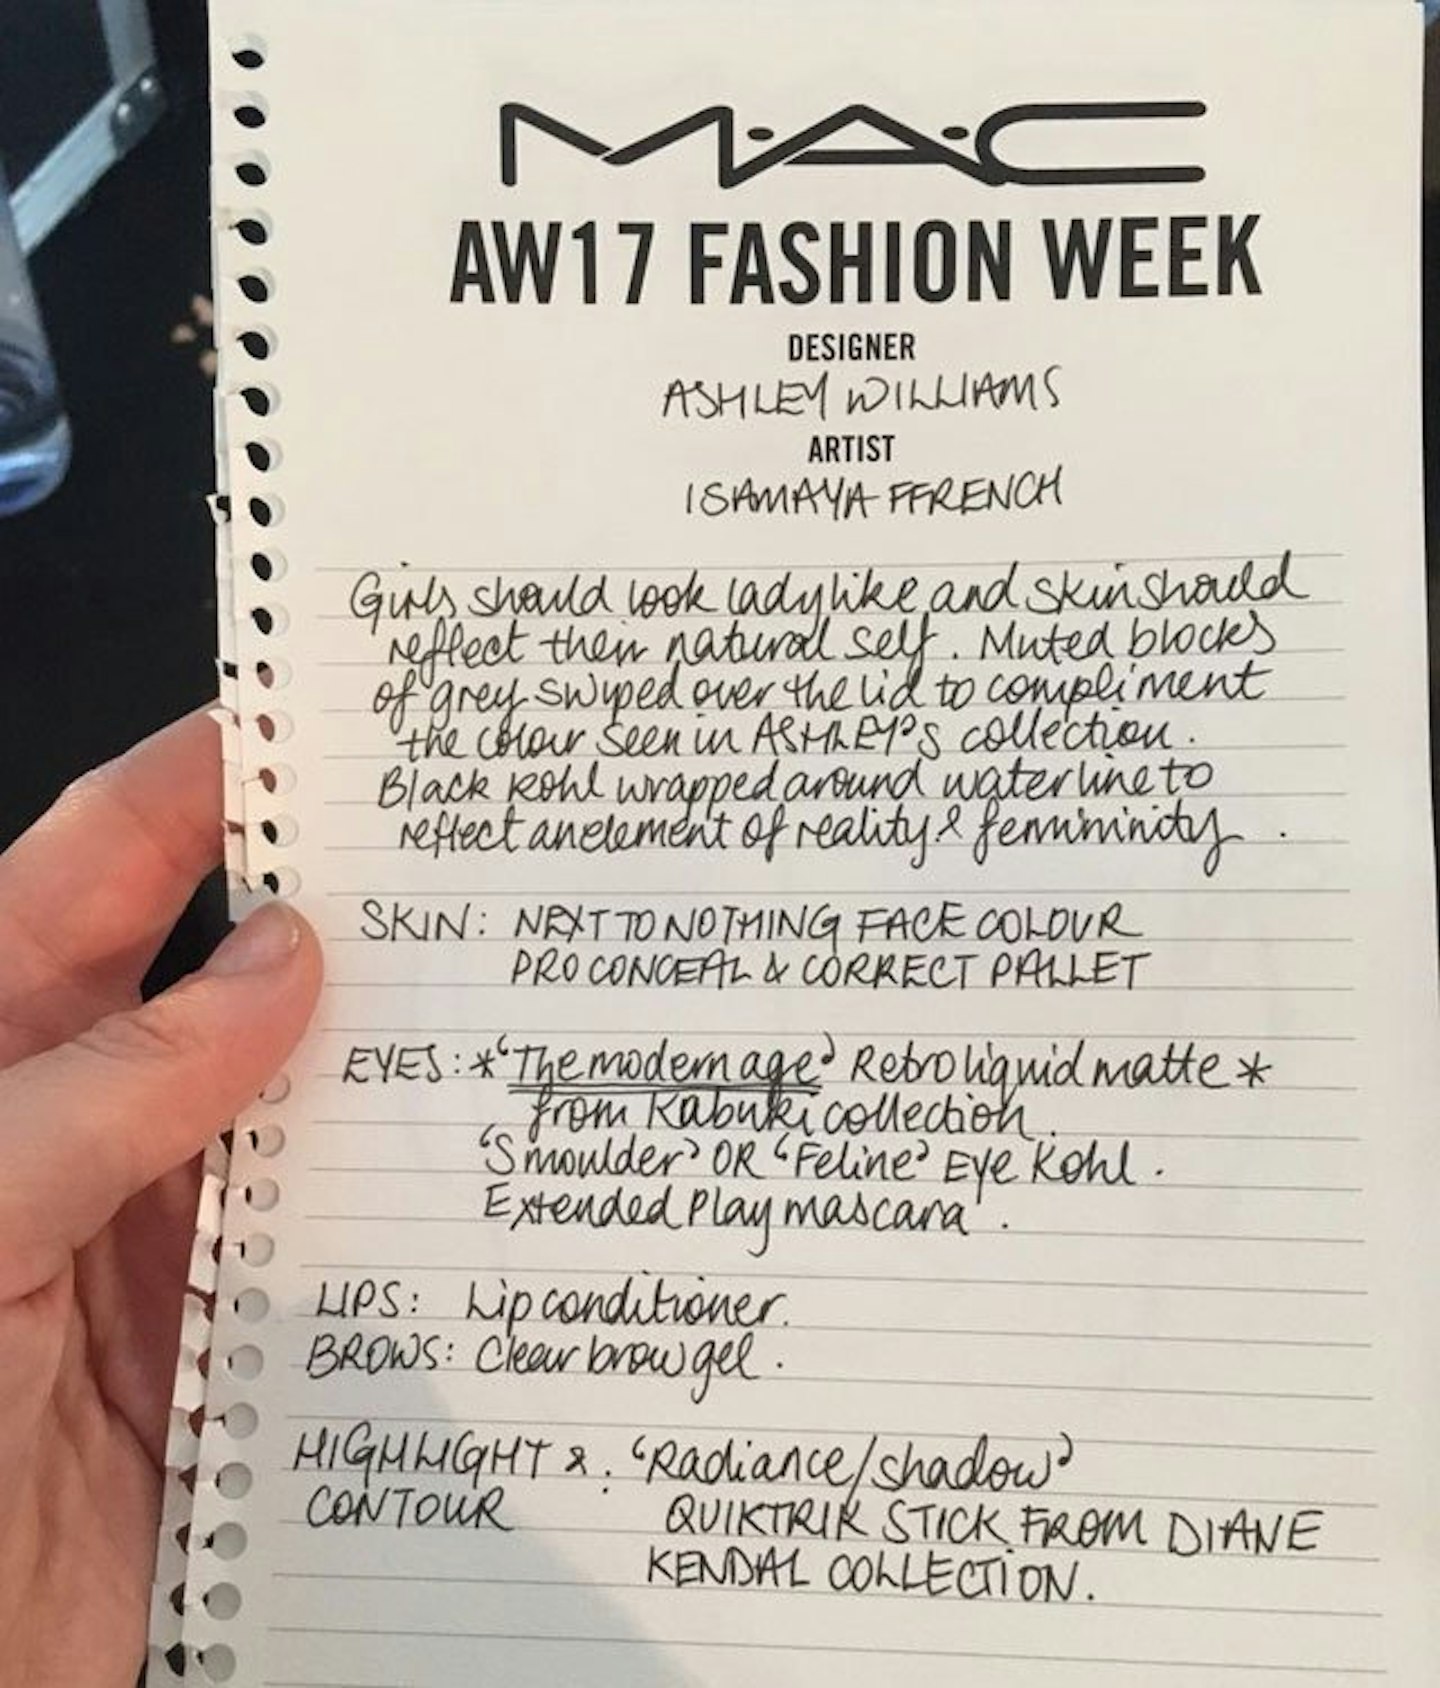 M·A·C
AW17 FASHION WEEK
DESIGNER
ASHLEY WILLIAMS
ARTIST
ISAMAYA FFRENCH
Girls should look ladylike and skin should
reflect their natural self. Muted blocks
of grey swiped over the lid to compliment
the colour seen in ASHLEY'S collection.
Black kohl wrapped around waterline to
reflect an element of reality & femininity.
SKIN: NEXT TO NOTHING FACE COLOUR
PRO CONCEAL & CORRECT PALLET
EYES: *'The modern age' Retro liquid matte*
from Kabuki collection.
'Smoulder' OR 'Feline' Eye Kohl.
Extended Play mascara.
LIPS: Lip conditioner.
BROWS: Clear brow gel.
HIGHLIGHT &: 'Radiance/shadow'
CONTOUR QUIKTRIK STICK FROM DIANE
KENDAL COLLECTION.